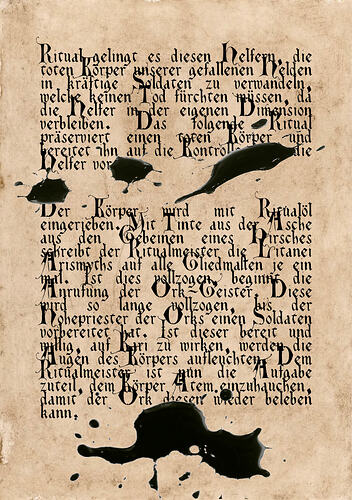 Ritual gelingt es diesen Helfern, die
toten Körper unserer gefallenen Helden
in kräftige Soldaten zu verwandeln,
welche keinen Tod fürchten müssen, da
die Helfer in der eigenen Dimension
verbleiben. Das folgende Ritual
präserviert einen toten Körper und
bereitet ihn auf die Kontrolle die
Helfer vor
Der Körper wird mit Ritualöl
eingerieben. Mit Tinte aus der Asche
aus den Gebeinen eines Hirsches
schreibt der Ritualmeister die Litanei
Arismyths auf alle Gliedmaßen je ein
mal. Ist dies vollzogen, beginnt die
Anrufung der Ork-Geister. Diese
wird so lange vollzogen, bis der
Hohepriester der Orks einen Soldaten
vorbereitet hat. Ist dieser bereit und
willig, auf Kari zu wirken, werden die
Augen des Körpers aufleuchten. Dem
Ritualmeister ist nun die Aufgabe
zuteil, dem Körper Atem einzuhauchen,
damit der Ork diesen wieder beleben
kann.